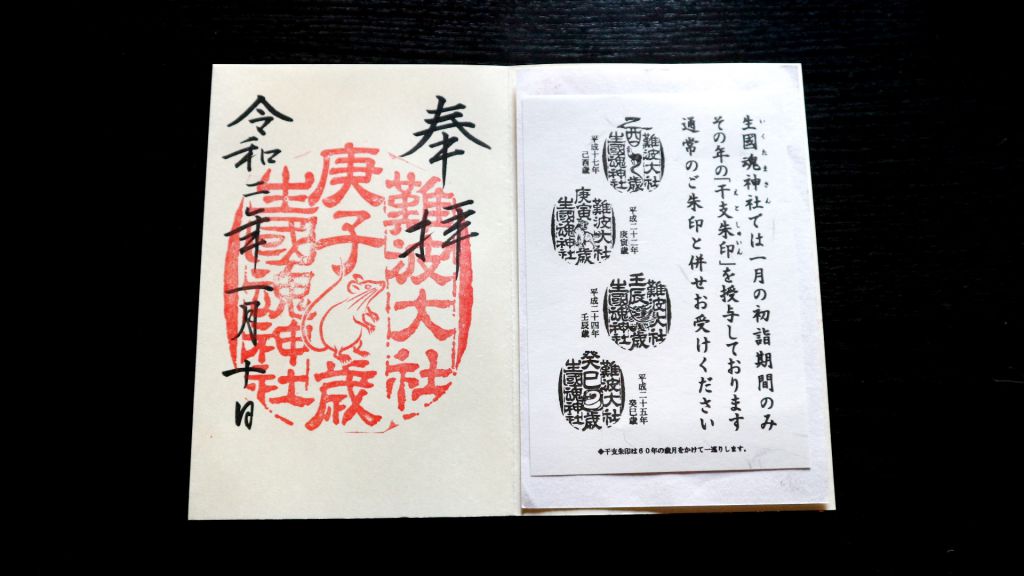 奉拝
難波大社
庚子歳
生國魂神社
令和二年一月十日
生國魂神社では一月の初詣期間のみ
いくたまさん
その年の「干支朱印」を授与しております
えとしゅいん
通常のご朱印と併せお受けください
難波大社
乙酉歳
生國魂神社
平成十七年
己酉歳
難波大社
庚寅歳
生國魂神社
平成二十二年
庚寅歳
難波大社
壬辰歳
生國魂神社
平成二十四年
壬辰歳
難波大社
癸巳歳
生國魂神社
平成二十五年
癸巳歳
◆干支朱印は60年の歳月をかけて一巡りします。